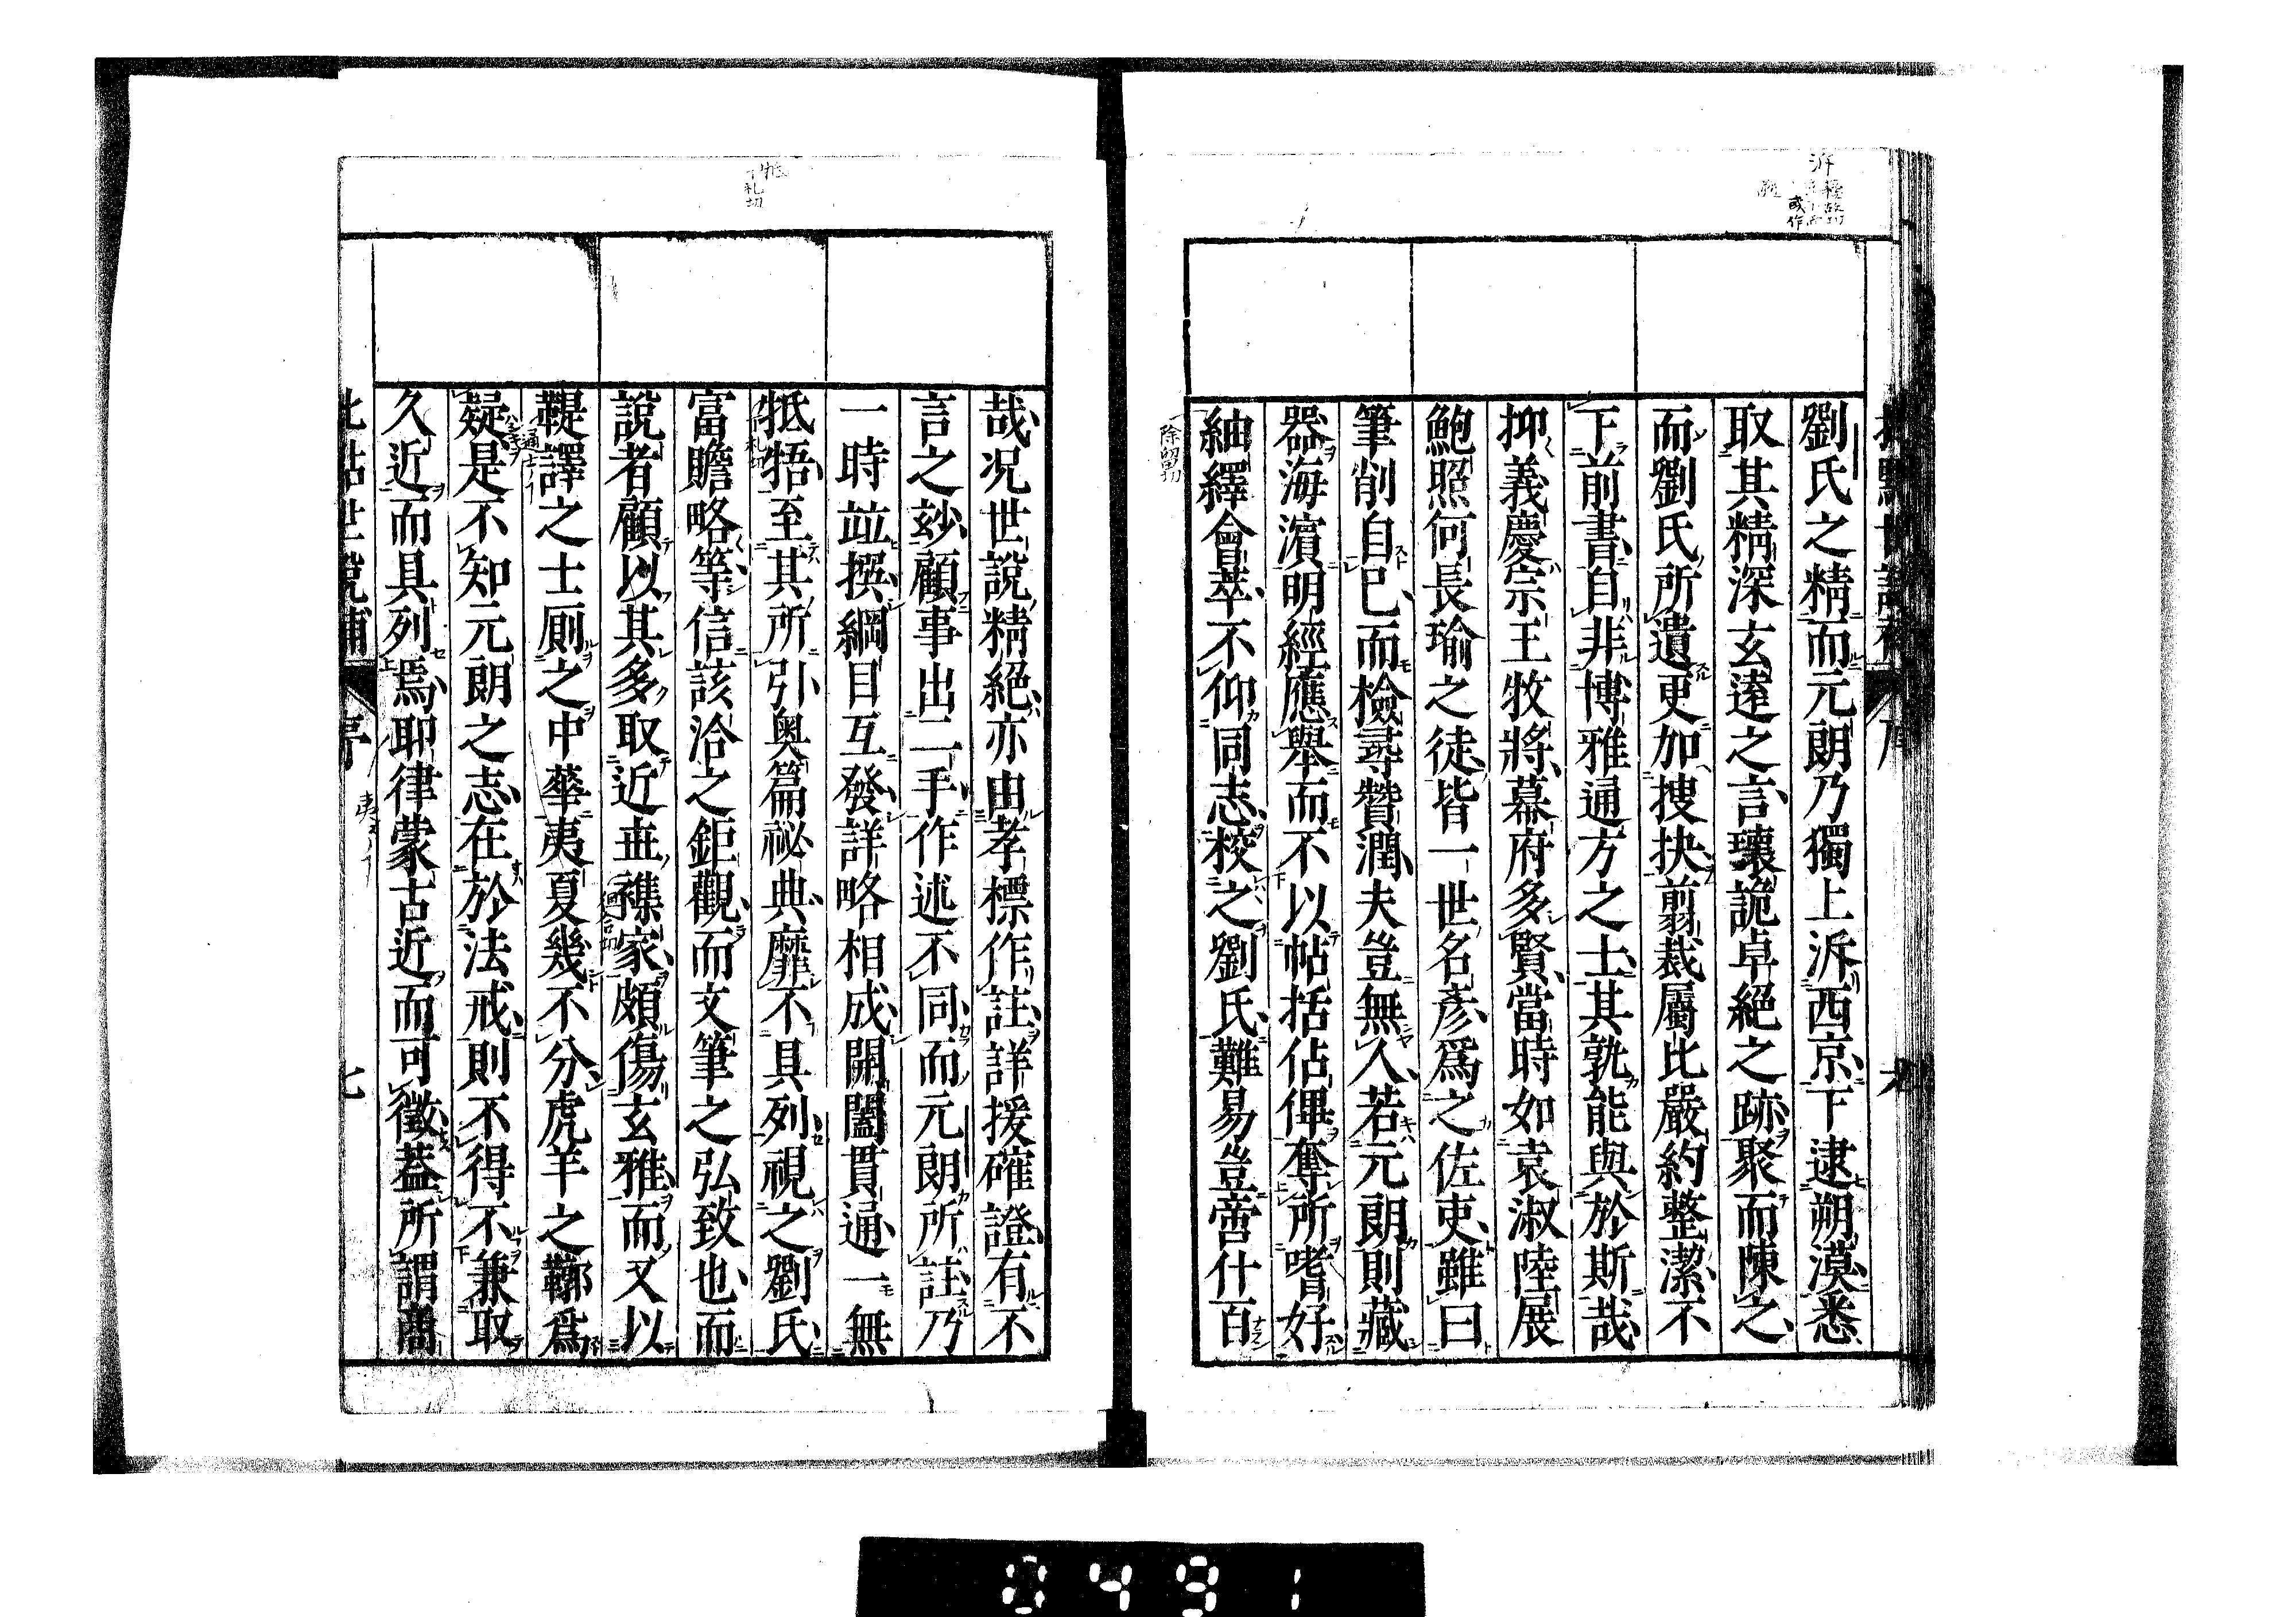 劉氏之精而元朗乃獨上泝西京下逮朔漠悉
取其精深玄遠之言瓌詭卓絕之跡聚而陳之
而劉氏所遺更加搜抉翦裁屬比嚴約整潔不
下前書自非博雅通方之士其孰能與於斯哉
抑義慶宗王牧將幕府多賢當時如袁淑陸展
鮑照何長瑜之徒皆一世名彥爲之佐吏雖曰
筆削自己而檢尋贊潤夫豈無人若元朗則藏
器海濵明經應舉而不以帖括佔僤奪所嗜好
紬繹會萃不仰同志校之劉氏難易豈啻什百
除留切
哉况世說精絕亦由孝標作註詳援確證有不
言之玅顧事出二手作述不同而元朗所註乃
一時竝撰綱目互發詳略相成開闔貫通一無
牴牾至其所引奥篇祕典靡不具列視之劉氏
富贍略等信該洽之鉅觀而文筆之弘致也而
說者顧以其多取近丗襍家頗傷玄雅而又以
鞮譯之士厠之中華夷夏幾不分虎羊之鞹爲
疑是不知元朗之志在於法戒則不得不兼取
久近而具列焉耶律蒙古近而可徵葢所謂商